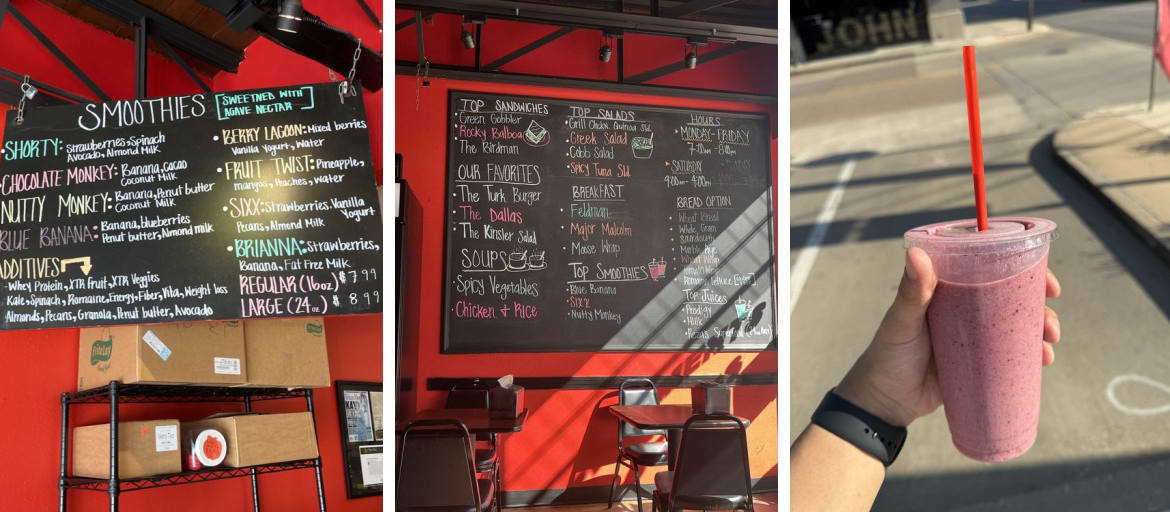 SMOOTHIES
SWEETNED WITH
AGAVE NECTAR
SHORTY: Strawberries, Spinach
Avocado, Almond Milk
CHOCOLATE MONKEY: Banana, Cacao
Coconut Milk
NUTTY MONKEY: Banana, Penut butter
Coconut Milk
BLUE BANANA: Banana, blueberries
Penut butter, Almond milk
ADDITIVES
Whey Protein, XTR Fruit, XTR Veggies
Kale, Spinach, Romaine, Energy, Fiber, Vita, Weight loss
Almonds, Pecans, Granola, Penut butter, Avocado
BERRY LAGOON: Mixed berries
Vanilla Yogurt, Water
FRUIT TWIST: Pineapple,
mangos, Peaches, Water
SIXX: Strawberries, Vanilla
Yogurt
Pecans, Almond Milk
BRIANNA: Strawberries,
Banana, Fat Free Milk
REGULAR (16oz) $7.99
LARGE (24oz) $8.99
TOP SANDWICHES
Green Gobbler
Rocky Balboa
The Birdman
OUR FAVORITES
The Turk Burger
The Dallas
The Kinster Salad
SOUPS
Spicy Vegetables
Chicken & Rice
TOP SALADS
Grill Chckn Quinoa Sld
Greek Salad
Cobb Salad
Spicy Tuna Sld
BREAKFAST
Feldman
Major Malcolm
Moose Wrap
TOP SMOOTHIES
Blue Banana
SIXX
Nutty Monkey
HOURS
MONDAY-FRIDAY
SATURDAY
9:00am-4:00pm
BREAD OPTION
Wheat Bread
Whole Grain
Sourdough
Marble Rye
Wheat Wrap
Top Juices
Prodigy
Hulk
JOHN